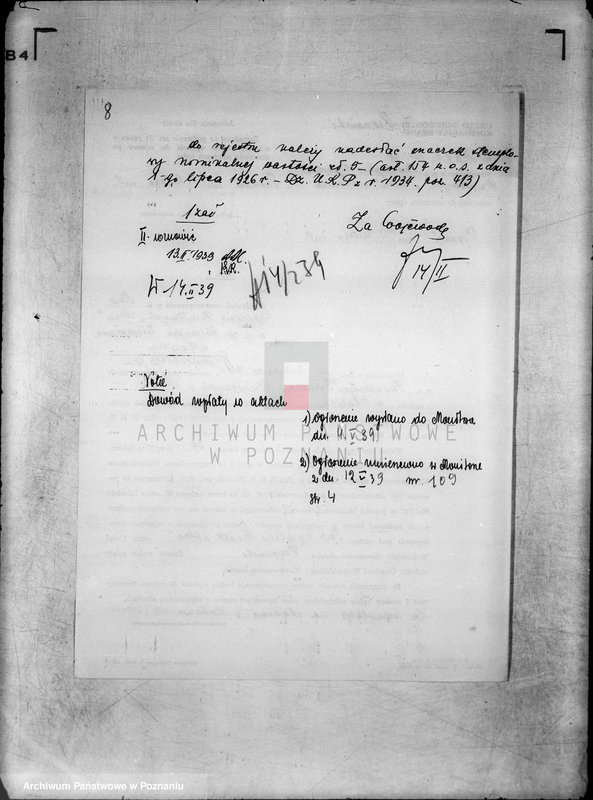 B4
8
do rejestru należy nadesłać znaczek stemplo-
wy nominalnej wartości zł. 5- (art. 154 u.o.s. z dnia
1-go lipca 1926 r. - Dz. U.R.P z r. 1934. poz. 413)
1 zał
Za Wojewodę
II. wznowić
13.II.1939
14/II
14.II.39
14/2 39
Note
Dowód wpłaty w aktach
1) Ogłoszenie wysłano do Monitora
dn. 4.V.39
2) Ogłoszenie umieszczono w Monitorze
z dn. 12 V 39 nr. 109
str. 4
ARCHIWUM PAŃSTWOWE
W POZNANIU
Archiwum Państwowe w Poznaniu